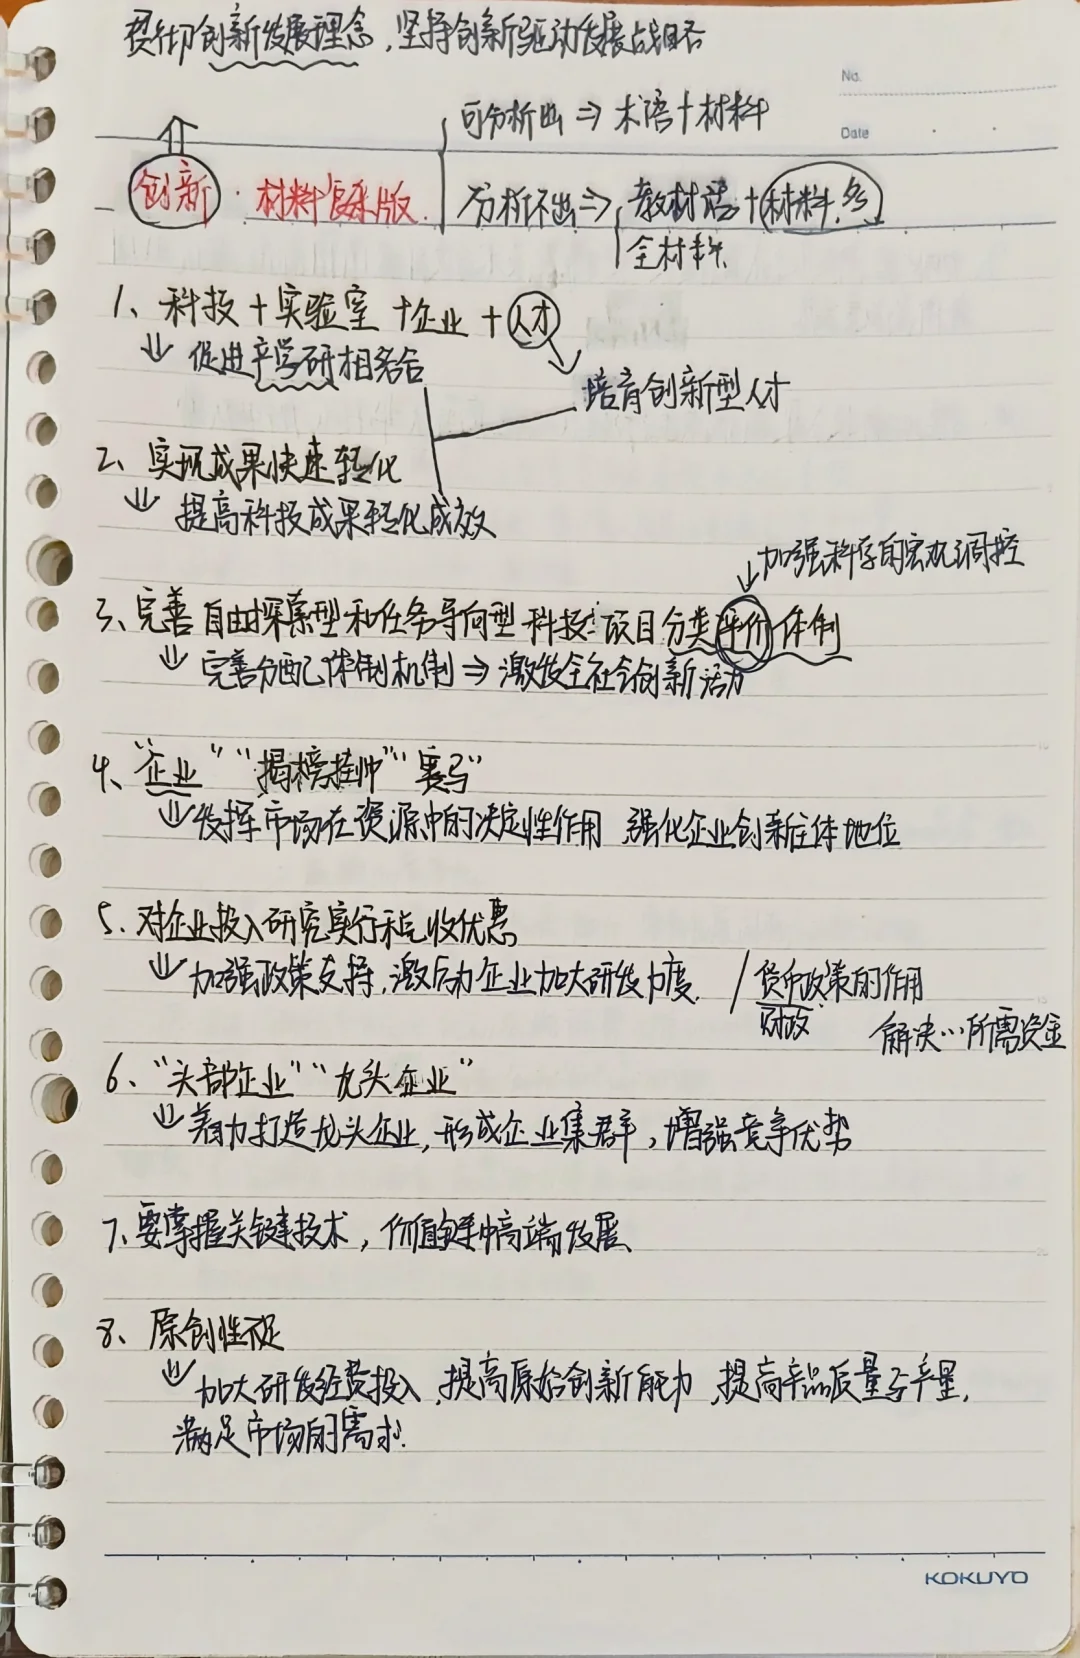 贯彻创新发展理念,坚持创新驱动发展战略
No.
Date
可分析出 ⇒ 术语+材料
创新·材料 版
分析不出 ⇒ 教材语+材料,多
全材料
1、科技+实验室+企业+人才
⇓ 促进产学研相结合
培育创新型人才
2、实现成果快速转化
⇓ 提高科技成果转化成效
加强科学的宏观调控
3、完善自由探索型和任务导向型科技项目分类评价体制
⇓ 完善分配体制机制 ⇒ 激发全社会创新活力
4、“企业”“揭榜挂帅”“赛马”
⇓ 发挥市场在资源中的决定性作用 强化企业创新主体地位
5.对企业投入研究实行税收优惠
⇓ 加强政策支持,激励企业加大研发力度. / 货币政策的作用
财政
解决…所需资金
6、“头部企业”“龙头企业”
⇓ 着力打造龙头企业,形成企业集群,增强竞争优势
7、要掌握关键技术,价值链中高端发展
8、原创性不足
⇓ 加大研发经费投入,提高原始创新能力,提高产品质量与产量,
满足市场的需求.
KOKUYO